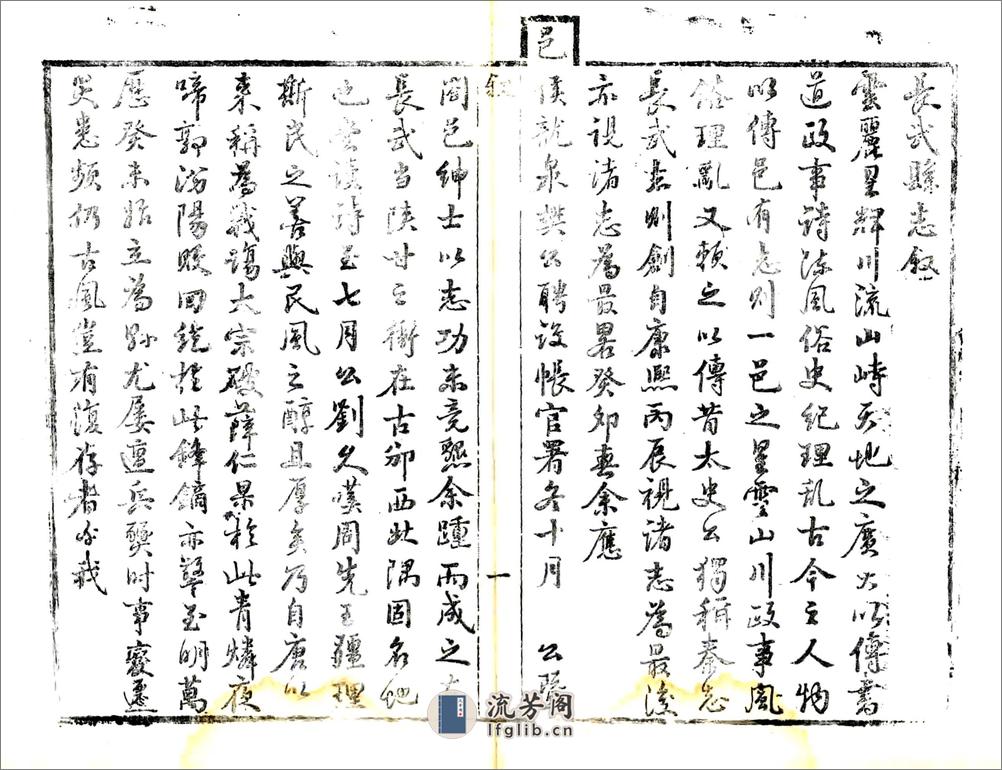 長武縣志叙
雲麗星輝川流山峙天地之廣大以傳書
道政事詩沫風俗史紀理乱古今之人物
以傳邑有志則一邑之星雲山川政事風
俗理亂又賴之以傳昔太史公獨稱秦志
長武志則創自康熙丙辰視諸志為最後
亦視諸志為最畧癸卯春余應
邑
侯就泉樊公聘設帳官署冬十月 公
叙
一
閤邑紳士以志功未竟懇余踵而成之
長武当陝甘之衝在古邠西北隅固名地
也嘗读詩至七月公劉久嘆周先王疆理
斯民之善與民風之醇且厚矣乃自唐以
来稱為戰場太宗破薛仁杲於此青燐夜
啼郭汾陽败回紇於此鋒鏑亦擎至明萬
歷癸未始立為縣尤屢遭兵燹时事變遷
災患頻仍古風豈有復存者哉
流芳阁
lfglib.cn